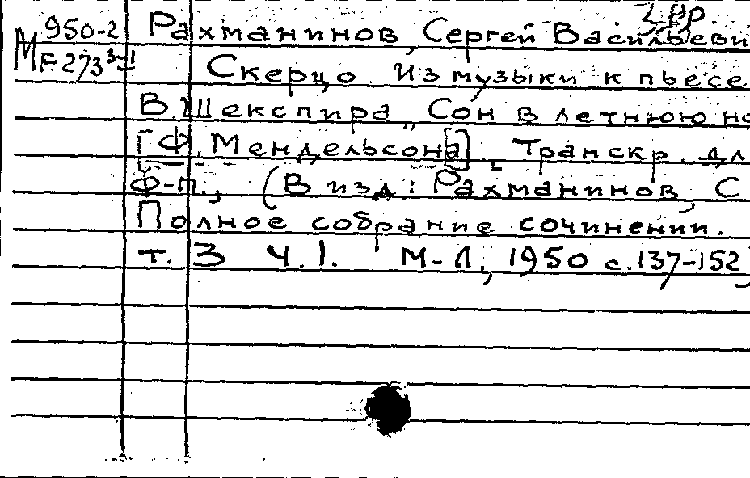 950-2
М F273
Рахманинов, Сергей Васильеви
Скерцо из музыки к пьесе
В. Шекспира „Сон в летнюю но
[Ф. Мендельсона]. Транскр. дл
ф-п., (В изд: Рахманинов, С
Полное собрание сочинении.
т. 3 ч. 1. М-Л, 1950 с. 137-152)